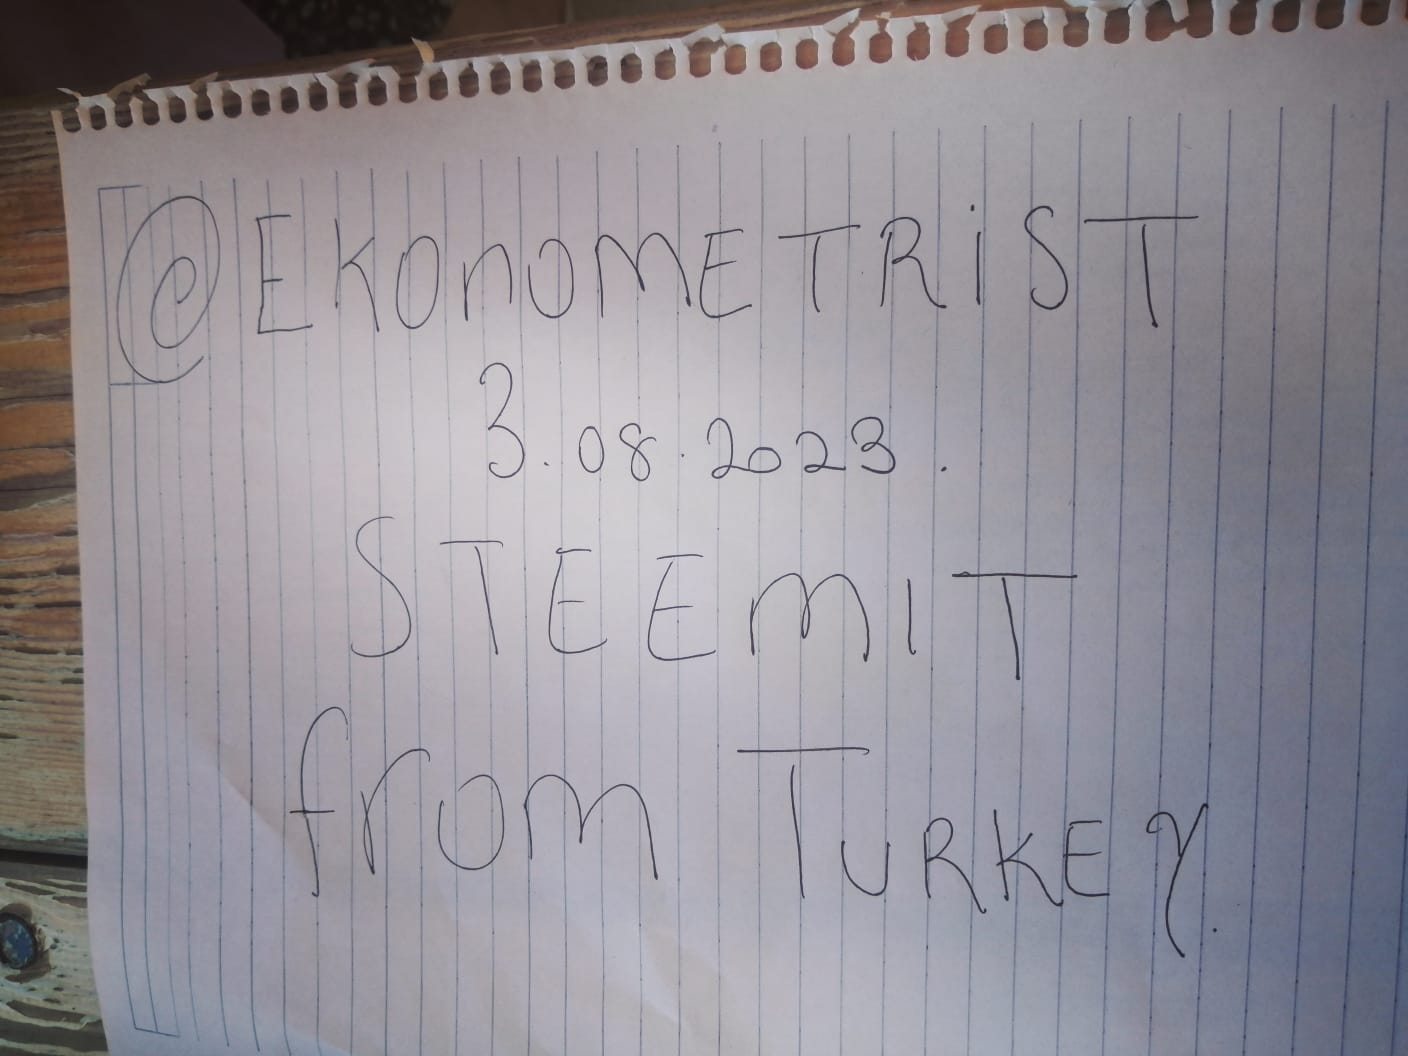 @EKONOMETRiST
3.08.2023.
STEEMIT
from TURKEY.